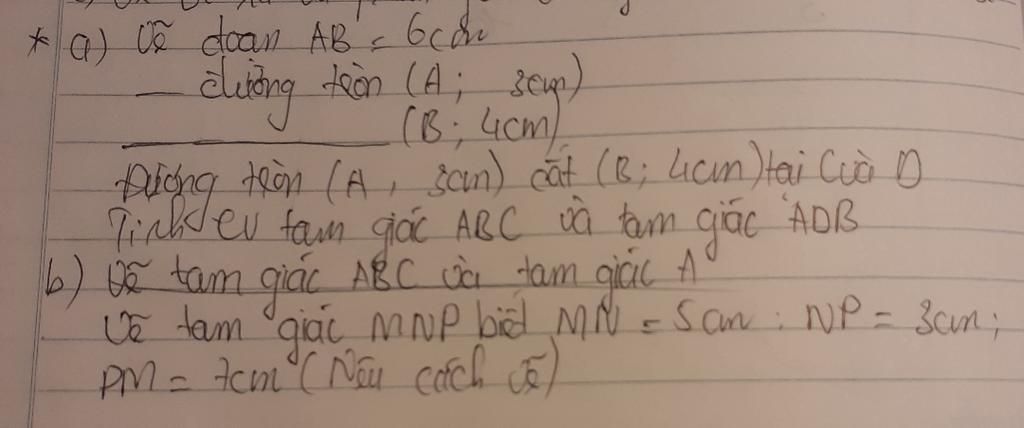 * a) Vẽ đoan AB = 6cm
— đường tròn (A; 3cm)
(B; 4cm)
Đường tròn (A, 3cm) cắt (B; 4cm) tại C và D
Tính cv tam giác ABC và tam giác ADB
b) Vẽ tam giác ABC và tam giác A
Vẽ tam giác MNP biết MN = 5cm; NP = 3cm;
PM = 7cm (Nêu cách vẽ)